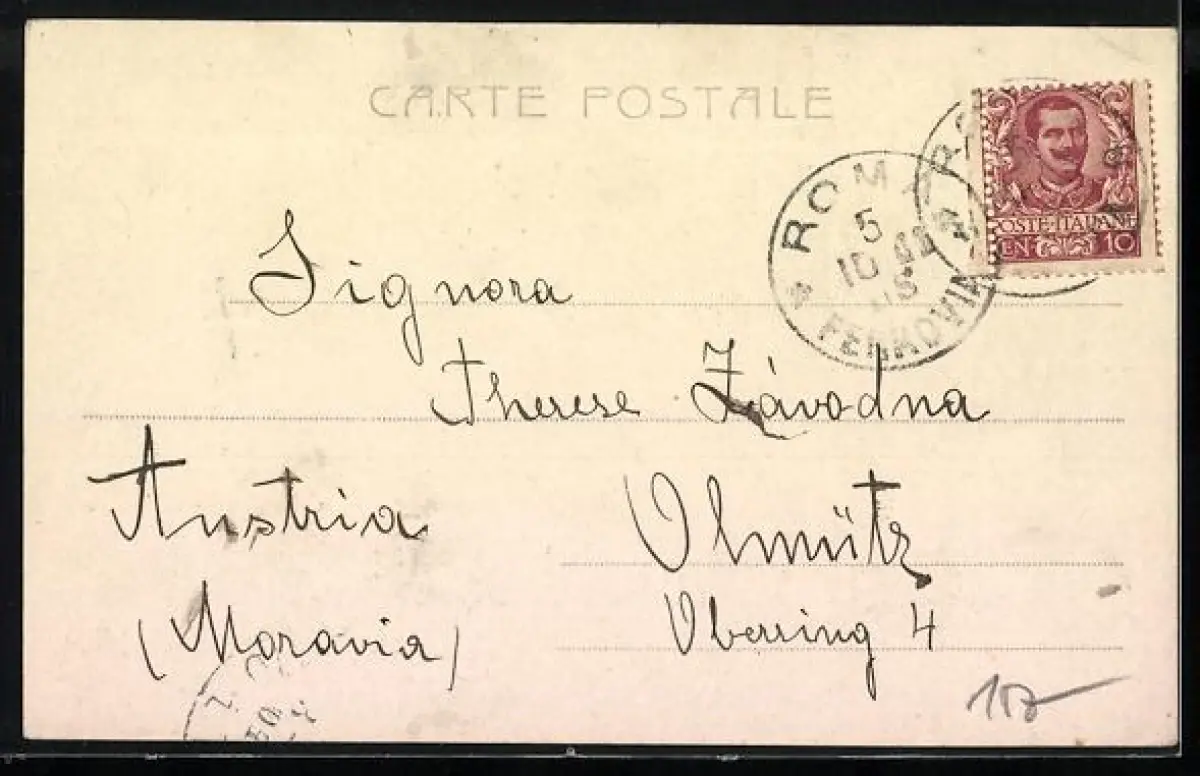 CARTE POSTALE
ROMA
5
10
FERROVIA
POSTE ITALIANE
CEN 10
Signora
Therese Závodna
Austria
Olmütz
(Moravia)
Oberring 4